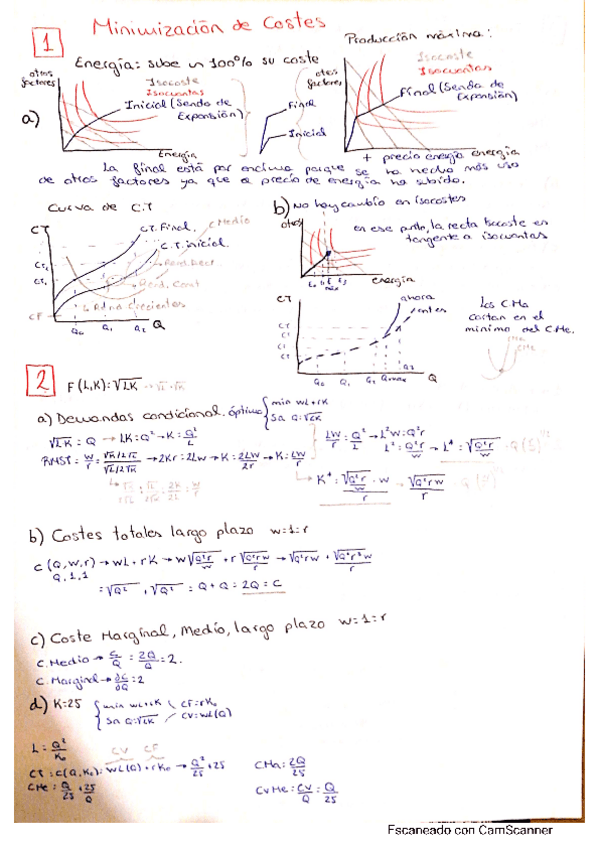 Minimización de Costes
1
Energía: sube un 100% su coste
Producción máxima:
otros factores
Isocoste
Isocuantas
Inicial (Senda de Expansión)
Final
Inicial
otros factores
Isocoste
Isocuantas
Final (Senda de Expansión)
a)
Energía
+ precio energía energía
La final está por encima porque se ha hecho más uso
de otros factores ya que el precio de energía ha subido.
Curva de C.T
b) No hay cambio en isocostes
CT
C.T. Final
C. Medio
C.T. inicial
Rend. Decr.
Rend. Const
Rdtos Crecientes
CF
Q0 Q1 Q2 Q
otros
en ese punto, la recta isocoste es
tangente a isocuantas
energía
CT
ahora
antes
Q0 Q1 Q2 Qmax Q3 Q
Los CMa
cortan en el
mínimo del CMe.
2
F(L,K): √LK
a) Demandas condicional. óptimo { min wL+rK
sa Q=√LK
√LK = Q → LK=Q² → K = Q²/L
RMST = w/r = (√K/2√L)/(√L/2√K) → 2Kr = 2Lw → K = 2LW/2r → K = LW/r
LW/r = Q²/L → L²W=Q²r
L² = Q²r/w → L* = √(Q²r/w)
K* = (√(Q²r/w) · w)/r → √(Q²rw)/r
b) Costes totales largo plazo w=1=r
C(Q,w,r) → wL+rK → w√(Q²r/w) + r √(Q²rw)/r → √Q²rw + √(Q²r³w)/r
Q,1,1
= √Q² + √Q² = Q+Q = 2Q = C
c) Coste Marginal, Medio, largo plazo w=1=r
C. Medio → C/Q = 2Q/Q = 2.
C. Marginal → ∂C/∂Q = 2
d) K=25 { min wL+rK
sa Q=√LK
CF=rK0
CV=wL(Q)
L = Q²/K0
CV CF
CT = C(Q,K0) = wL(Q)+rK0 → Q²/25 + 25
CMa: 2Q/25
CMe = Q/25 + 25/Q
CVMe = CV/Q = Q/25
Escaneado con CamScanner